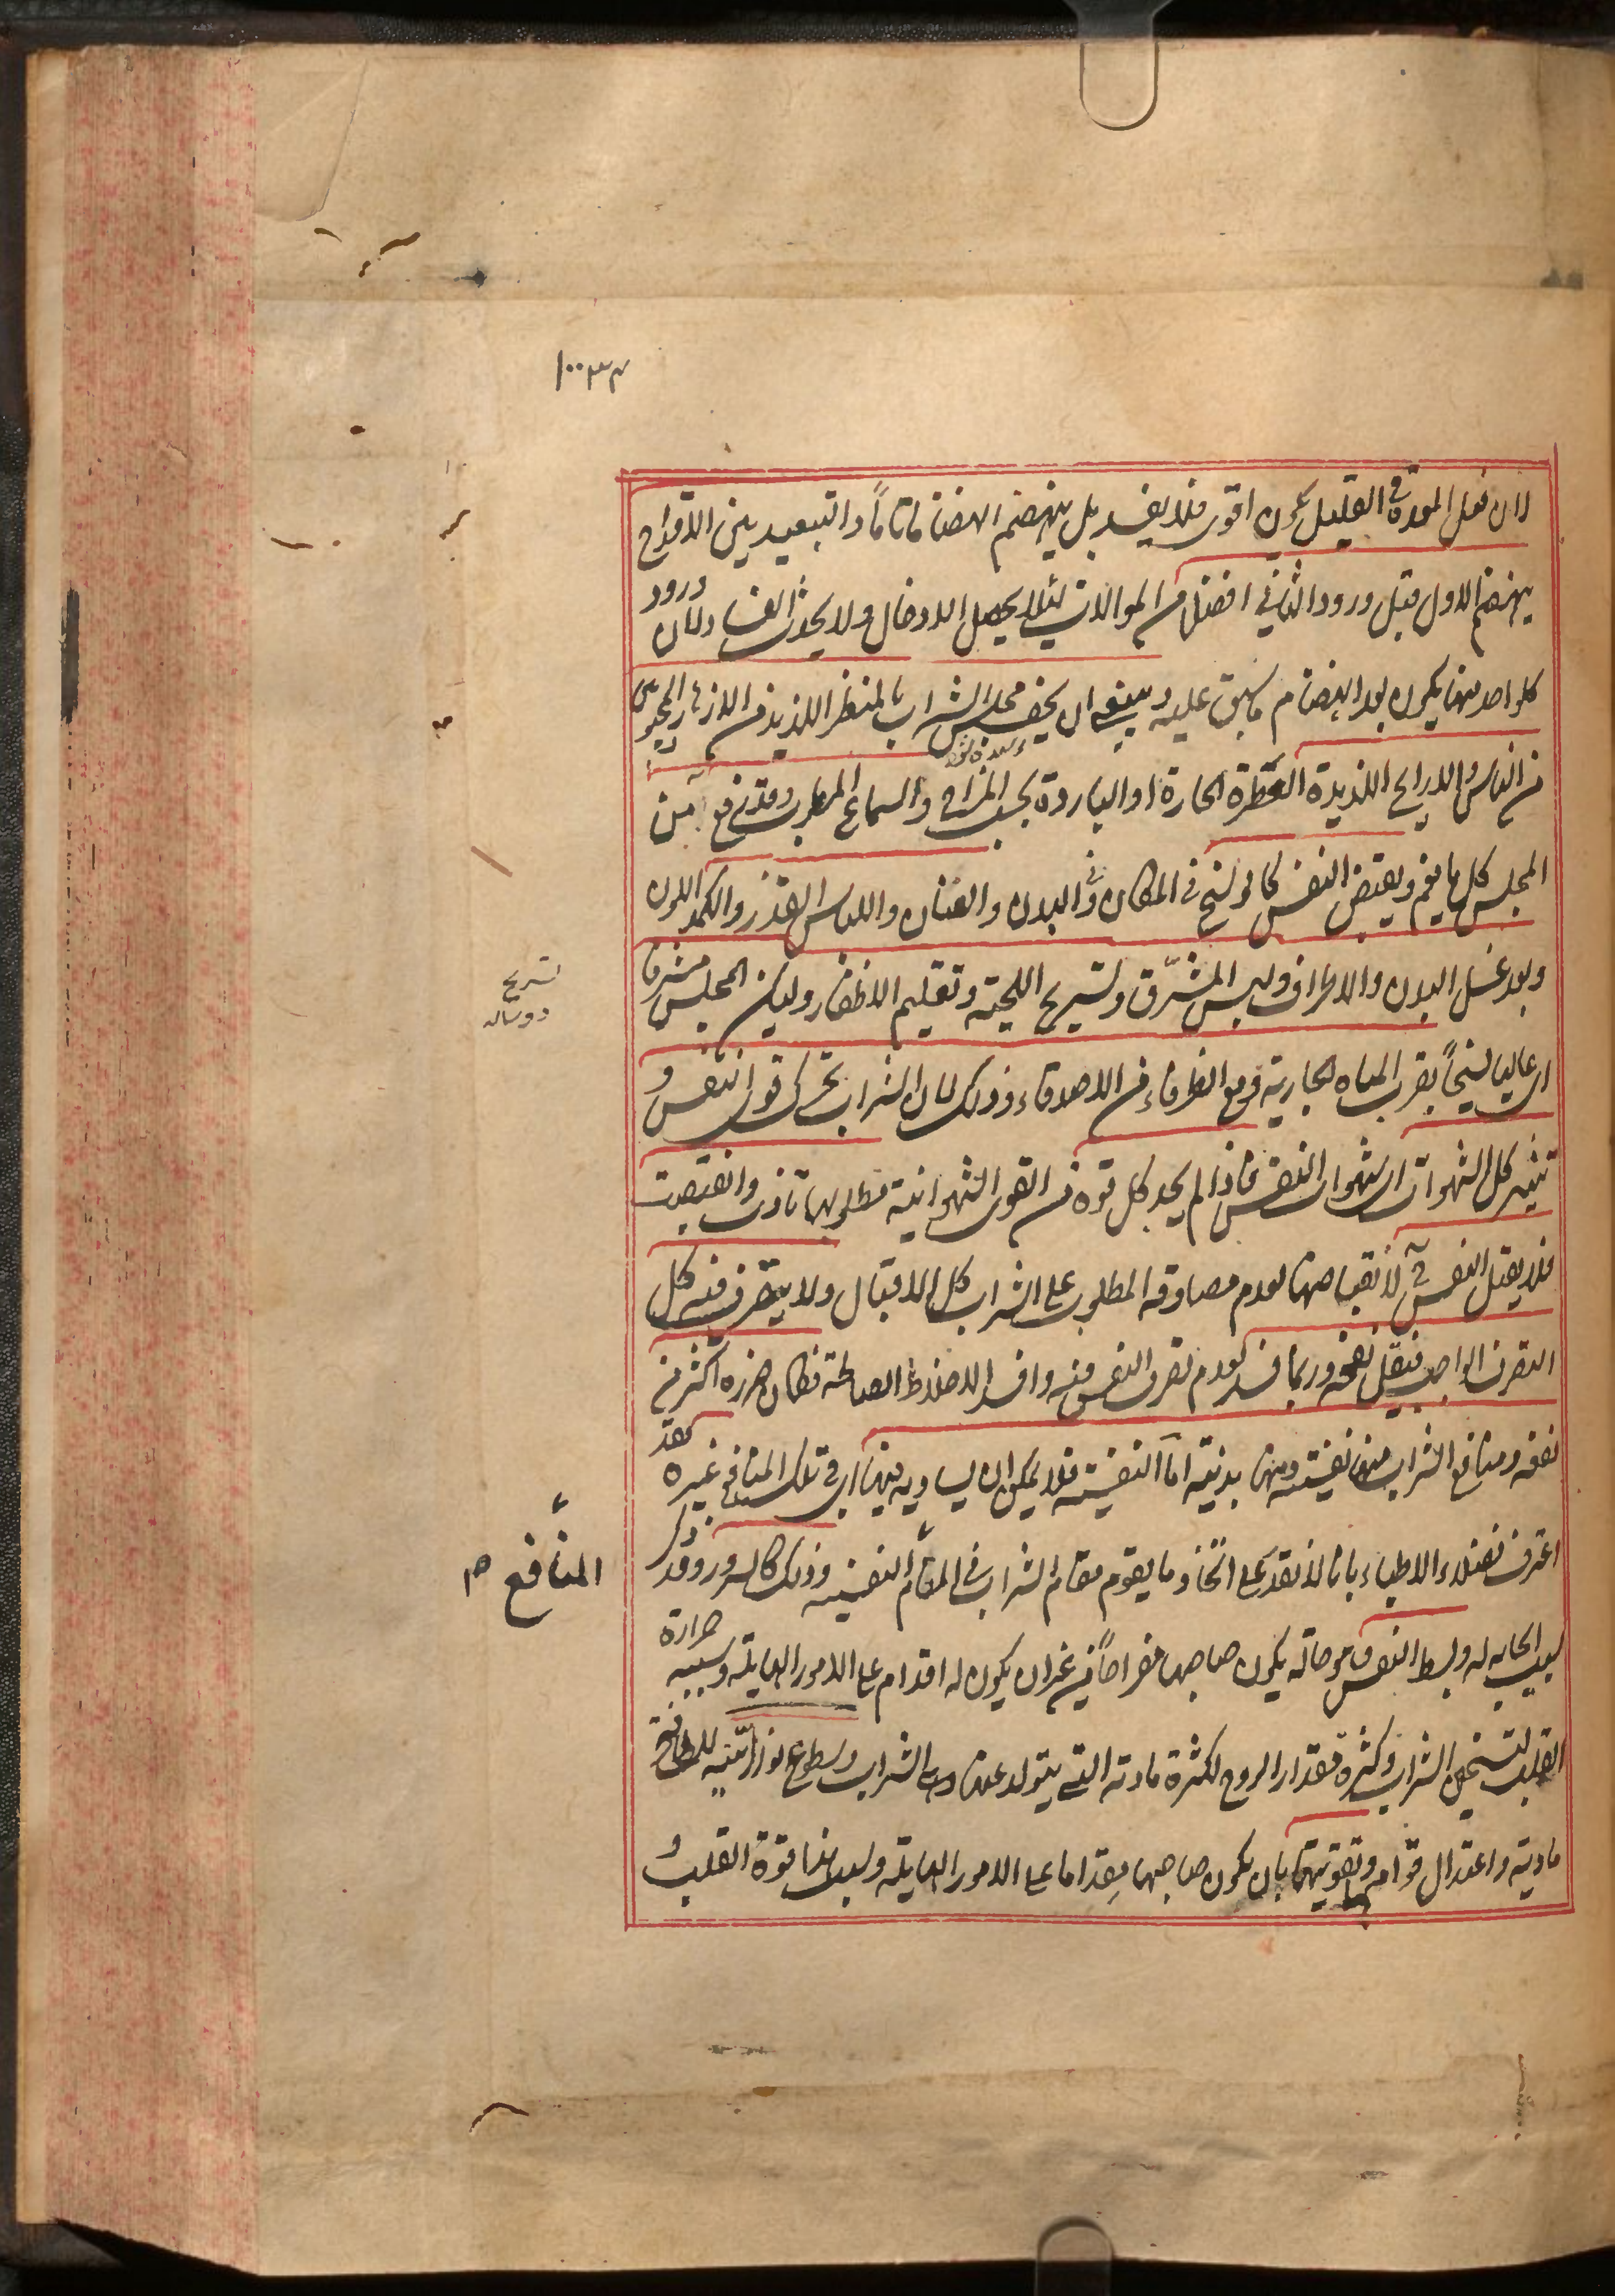 ١٠٠٣٣
لان فعل المعدة في القليل يكون اقوى فلا يفسد بل ينهضم انهضاما تاماً والتبعيد بين الاقداح
ينهضم الاول قبل ورود الثاني افضل من الموالات لئلا يحصل الادخال ولا يحدث الفساد ولان ورود
كلواحد منها يكون بعد انهضام ما سبق عليه وينبغي ان يحف مجلس الشراب بالمنظر اللذيذ من الازهار
من الناس والاراييح اللذيذة العطرة الحارة او الباردة بحسب المزاج والسماع المطرب وقد يرفع من
المجلس كل ما يغم ويقبض النفس كالوسخ في المكان وفي البدن والصنان واللباس القذر والكمد اللون
وبعد غسل البدن والاطراف ولبس المشرق وتسريح اللحية وتقليم الاظفار وليكن المجلس مشرفا
اي عاليا فسيحاً بقرب المياه الجارية ومع الظرفاء من الاصدقاء وذلك لان الشراب يحرك قوى النفس و
تثير كل الشهوات اي شهوات النفس فاذا لم يجد كل قوة من القوى الشهوانية مطلوبها تاذت وانقبضت
فلا يقبل النفس ح لانقباضها لعدم مصادفة المطلوب على الشراب كل الاقبال ولا يتصرف فيه كل
التصرف الواجب فيقل نفعه وربما فسد لعدم تصرف النفس فيه وافسد الاخلاط الصالحة فكان ضرره اكثر من
نفعه ومنافع الشراب منها نفسية ومنها بدنية اما النفسية فلا يمكن ان يساويه فيها اي في تلك المنافع غيره فقد
اعترف فضلاء الاطباء بانا لا نقدر على اتخاذ ما يقوم مقام الشراب في المنافع النفسية وذلك كالسرور وقد ذكر
لسبب الجالب له وبسط النفس وهو حالة يكون صاحبها مفراحاً من غير ان يكون له اقدام على الامور الهايلة وسببه حرارة
القلب لتسخين الشراب وكثرة مقدار الروح لكثرة مادته التي يتولد عنها وهي الشراب وسطوع نورانيته للطافة
مادته واعتدال قوامه وتقويتها بان يكون صاحبها مقداما على الامور الهايلة وسببها قوة القلب و
تسريح
المنافع صح